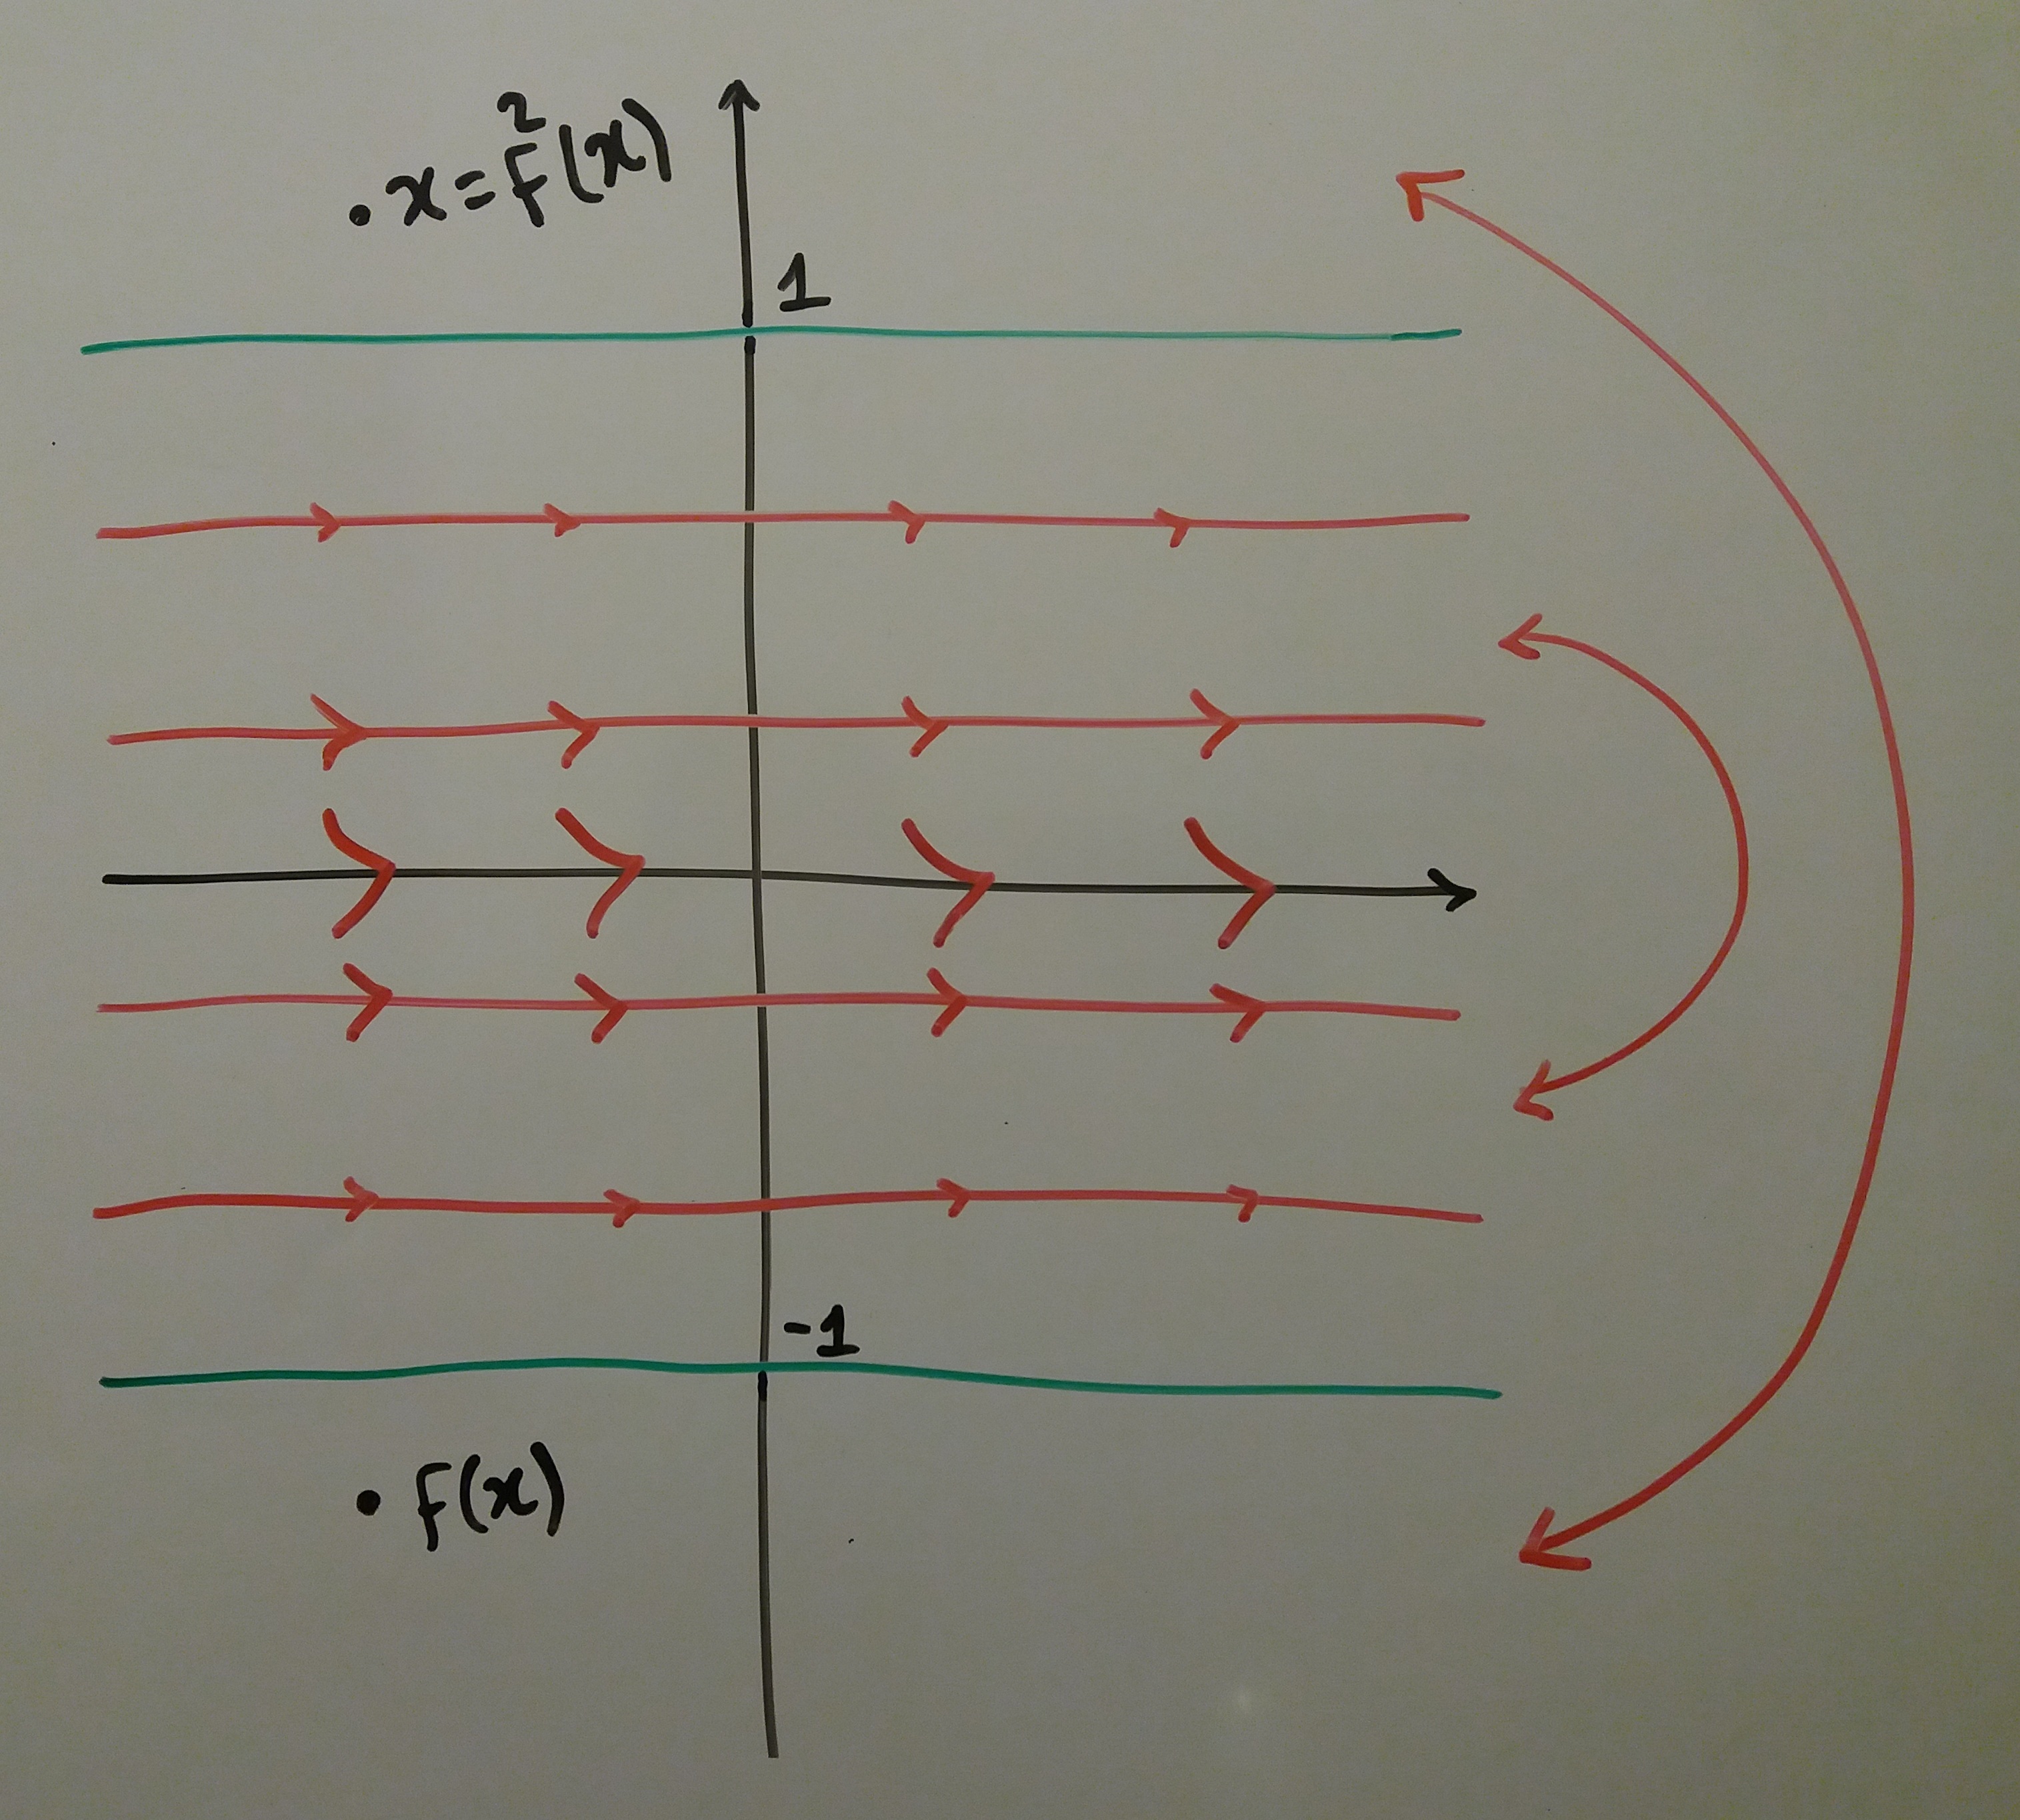 . x = f²(x)
1
-1
. f(x)